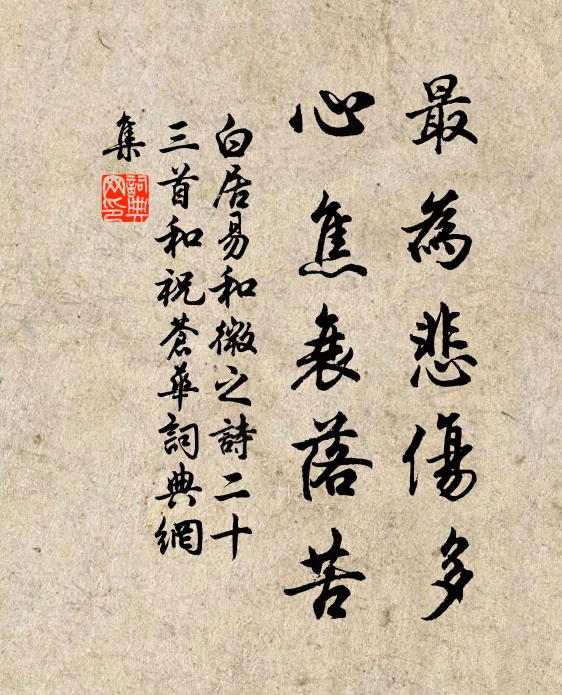 最為悲傷多
心焦衰落苦
白居易和微之詩二十
三首和祝蒼華詞典網
集
詞典
网印